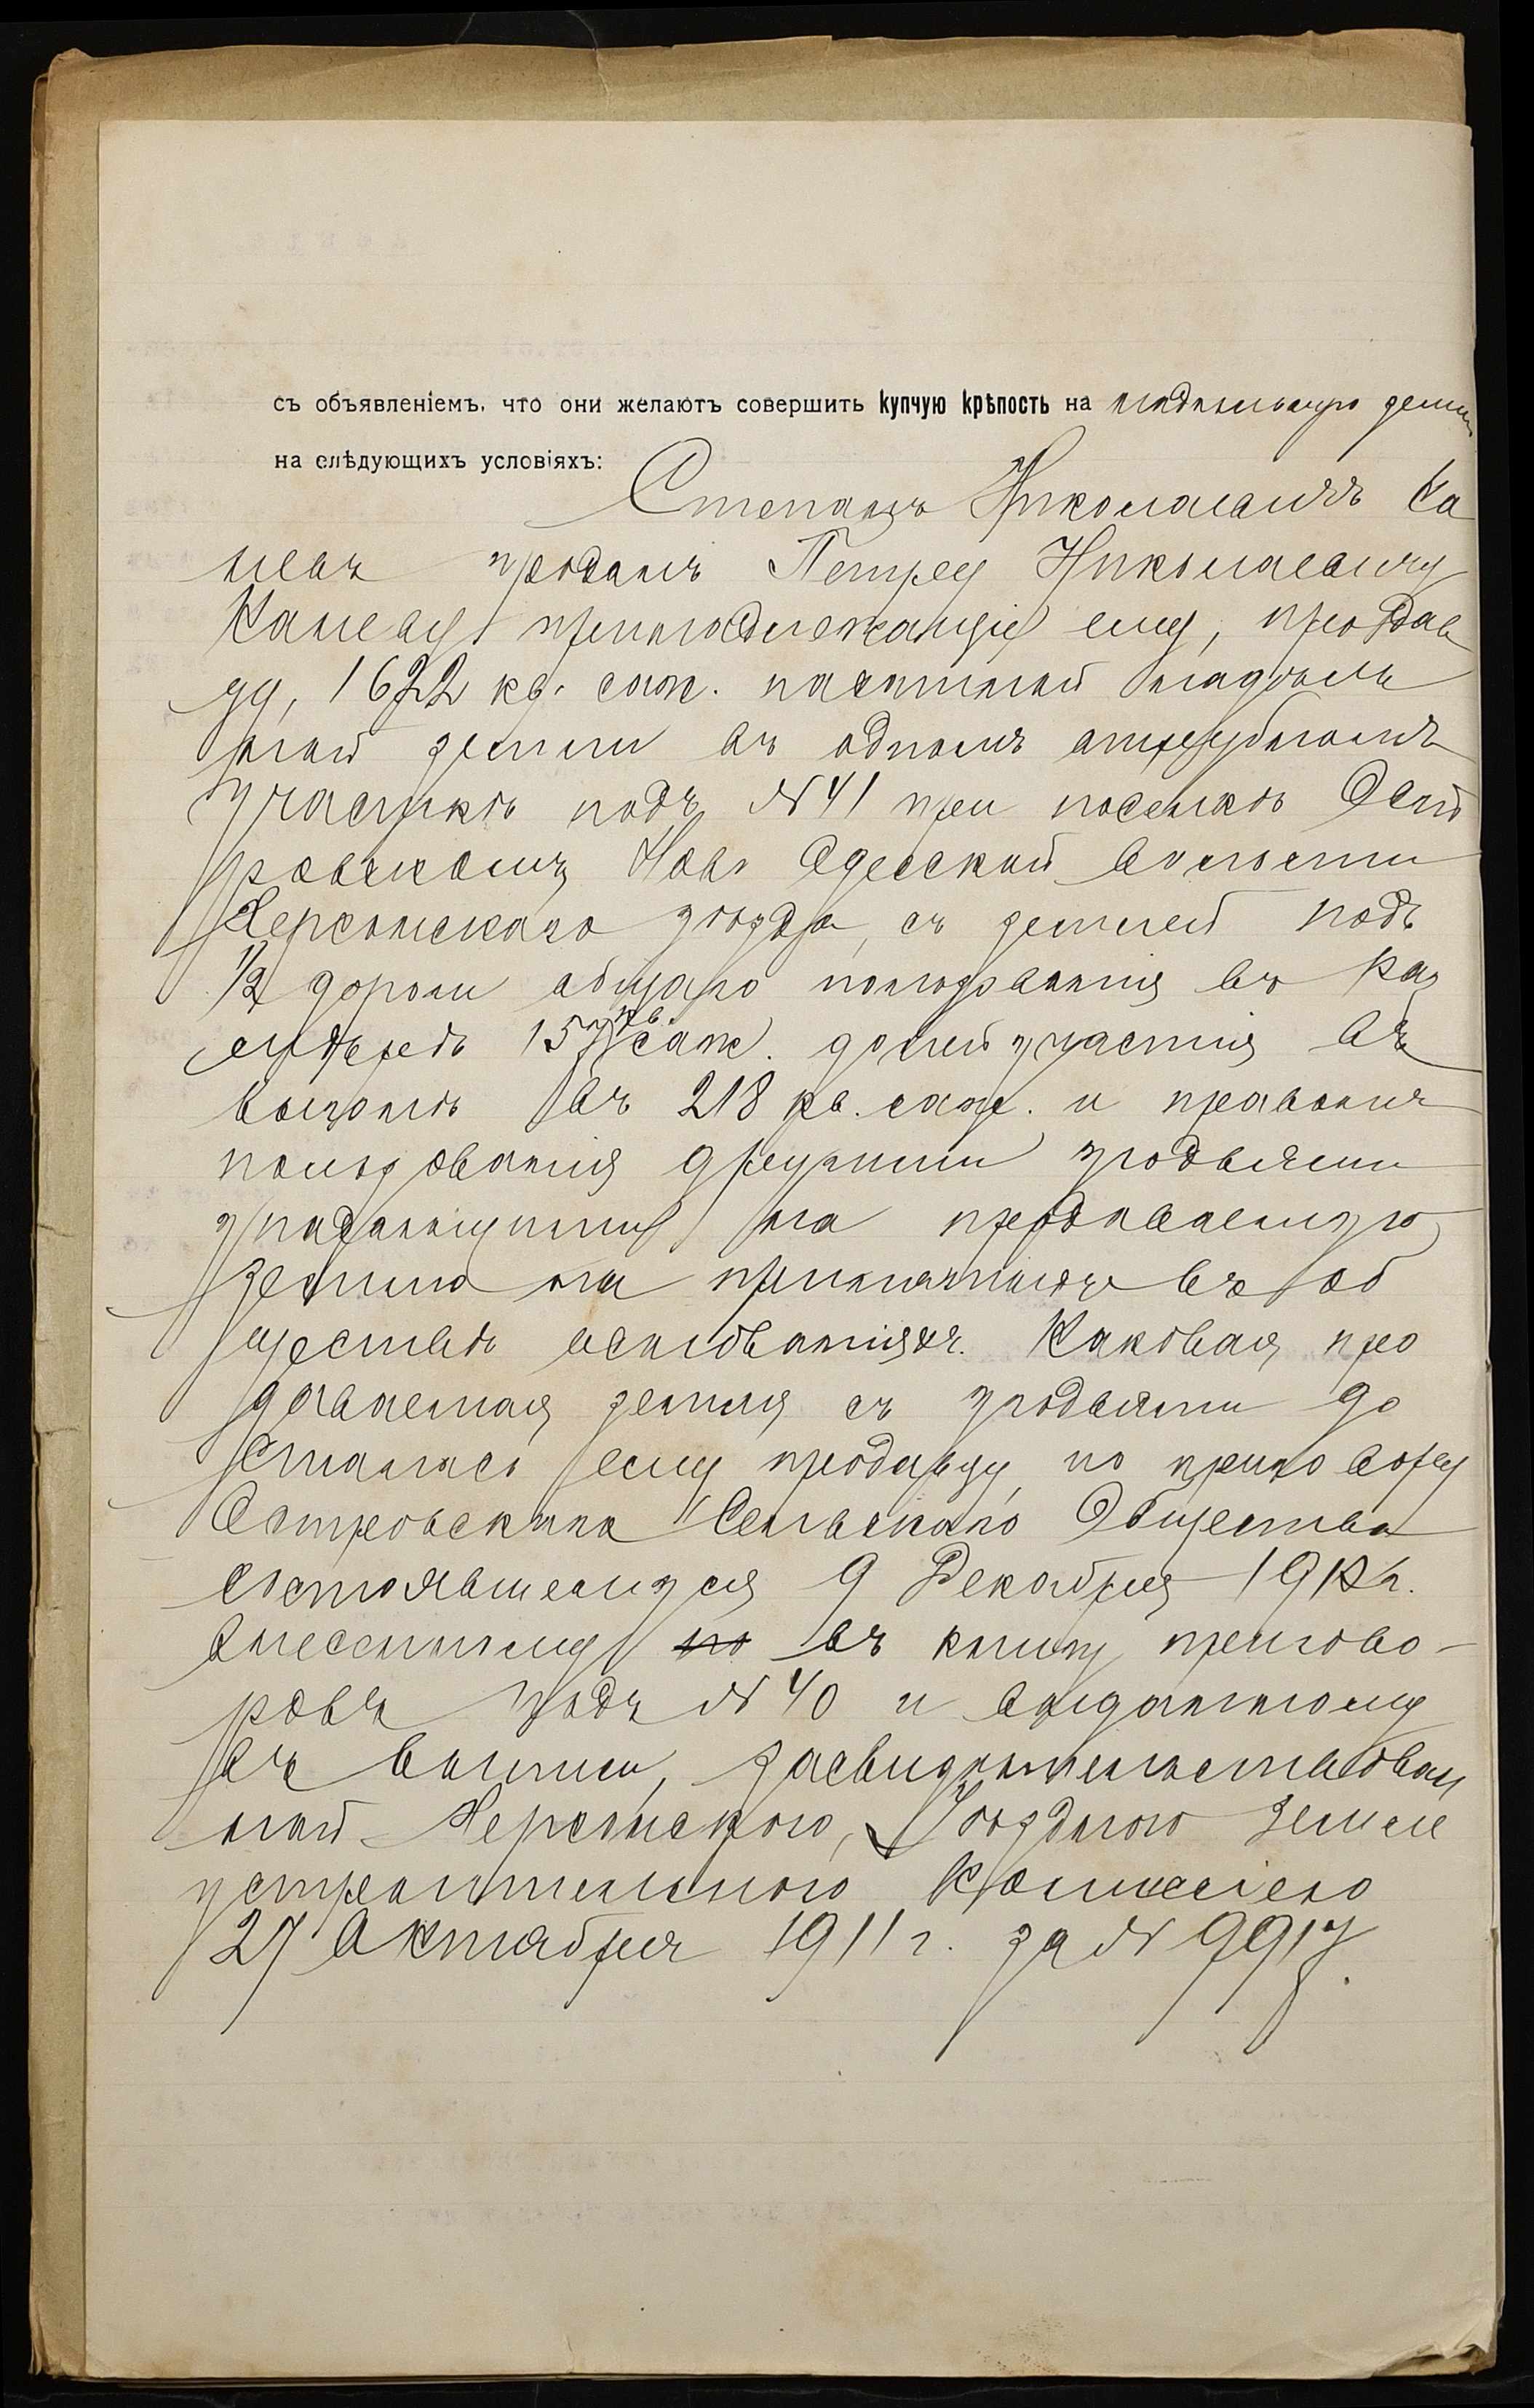 съ объявленіемъ, что они желаютъ совершить купчую крѣпость на надѣльную землю
на слѣдующихъ условіяхъ:
Степанъ Николаевичъ Ка
невъ продалъ Петру Николаевичу
Каневу принадлежащую ему, продав
цу, 1622 кв. саж. пахатной надѣль
ной земли въ одномъ отрубномъ
участкѣ подъ № 41 при поселкѣ Ост
ровскомъ Ново Одесской волости
Херсонскаго уѣзда, съ землей подъ
1/2 дороги общаго пользованія въ раз
мѣрѣ 157 кв саж. долей участія въ
выгонѣ въ 218 кв. саж. и правомъ
пользованія другими угодьями
упадающими на продаваемую
землю на принятыхъ въ об
ществѣ основаніяхъ. Каковая про
даваемая земля съ угодьями до
сталась ему продавцу, по приговору
Островскаго Сельскаго Общества
состоявшемуся 9 Декабря 191 г.
внесенному по въ книгу пригово-
ровъ подъ № 40 и выданному
въ выписи, засвидѣтельствован
ной Херсонскою, Уѣздною Земле
устроительною Коммиссіею
27 Октября 1911 г. за № 9917.